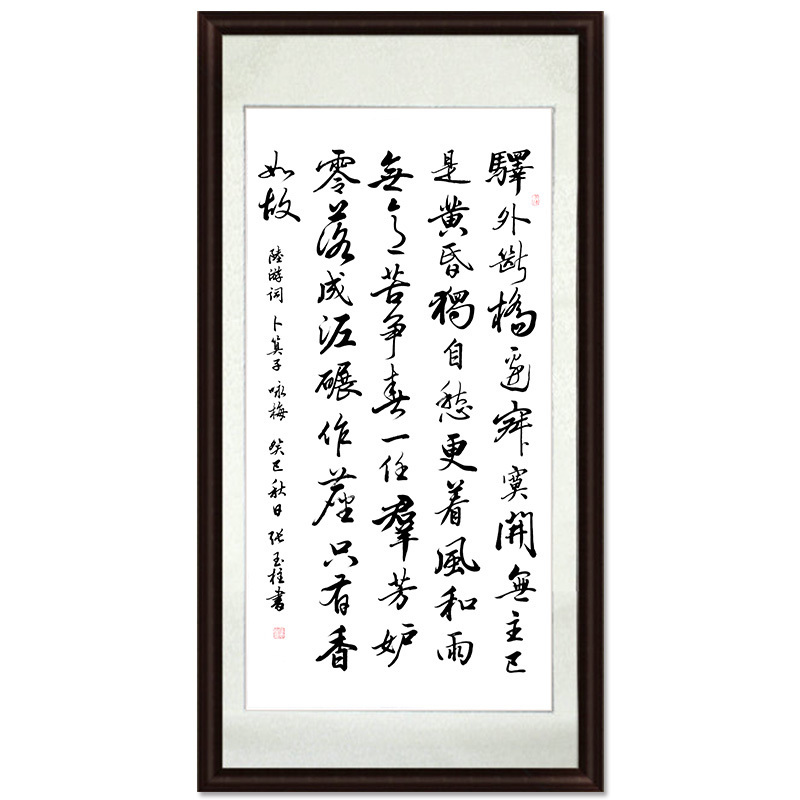 驛外斷橋邊寂寞開無主已
是黄昏獨自愁更着風和雨
無意苦争春一任羣芳妒
零落成泥碾作塵只有香
如故
陸游词 卜算子 咏梅 癸巳秋日 张玉柱書